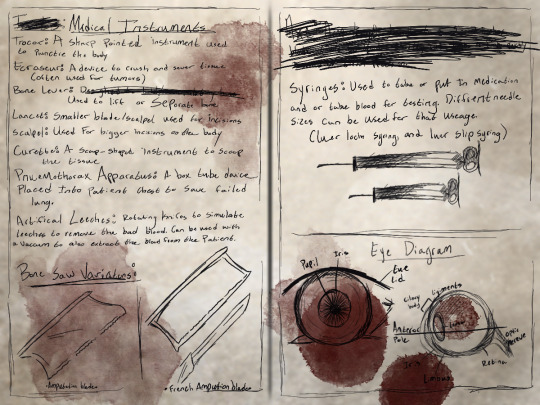 Medical Instruments
Trocar: A sharp pointed instrument used
to Punctire the body
Ecraseur: A device to crush and sever tissue
(often used for tumors)
Bone Lever:
Used to lift or Seperate bone
Lancet: Smaller blade/scalpel used for incisions
scalpel: Used for bigger incisions on the body
Curette: A scoop-shaped instrument to scoop
the tissue
Pnuemothorax Apparatus: A box tube device
Placed Into Patient chest to save failed
lung.
Artifical Leeches: Rotating knifes to simulate
leeches to remove the bad blood. Can be used with
a vaccum to also extract the blood from the Patient.
Bone Saw Variations:
Amputation blade
French Amputation blade
Syringes: Used to take or put in Medication
and or take blood for testing. Diffrent needle
sizes can be used for that useage.
(Luer lock syring, and luer slip syring)
Eye Diagram
Pupil
Iris
Eye
Lid
Ciliary
body
ligments
Anterior
Pole
Lens
optic
nerve
Retina
Iris